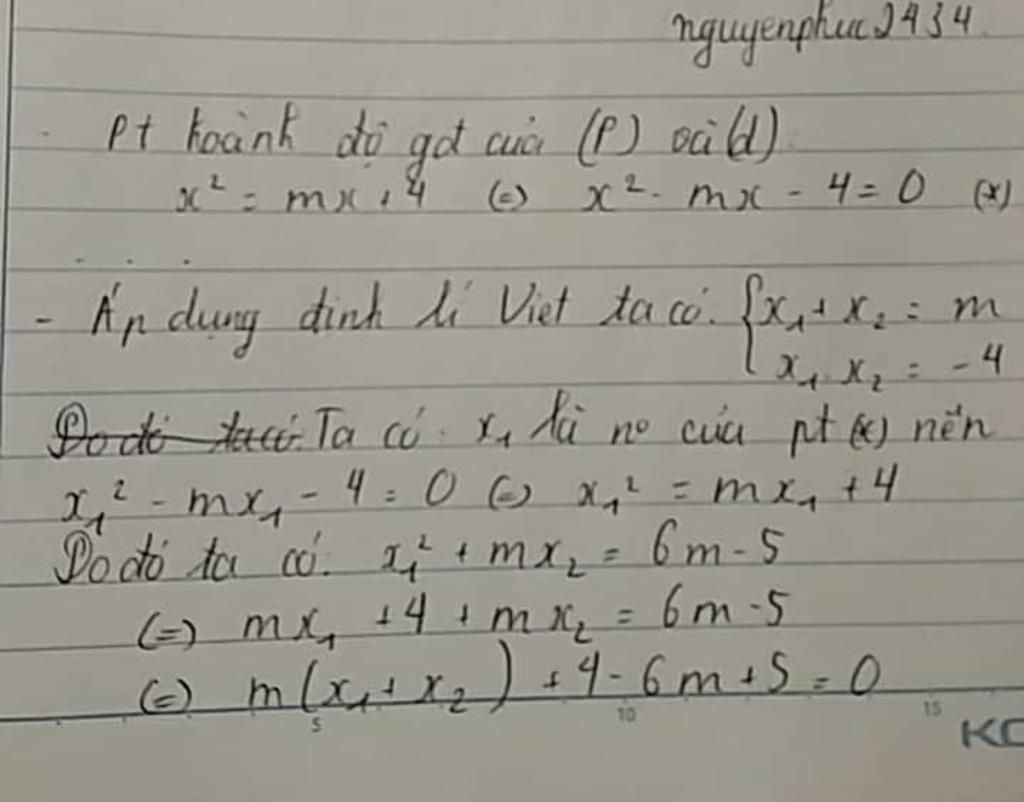 nguyenphuc2434
Pt hoành độ gđ của (P) và (d)
x² = mx + 4 (=) x² - mx - 4 = 0 (*)
. . .
- Áp dụng định lí Viet ta có: { x₁ + x₂ = m
x₁ x₂ = -4
Do đó ta có: Ta có: x₁ là no của pt (*) nên
x₁² - mx₁ - 4 = 0 (=) x₁² = mx₁ + 4
Do đó ta có: x₁² + mx₂ = 6m - 5
(=) mx₁ + 4 + mx₂ = 6m - 5
(=) m(x₁ + x₂) + 4 - 6m + 5 = 0
5 10 15
KC